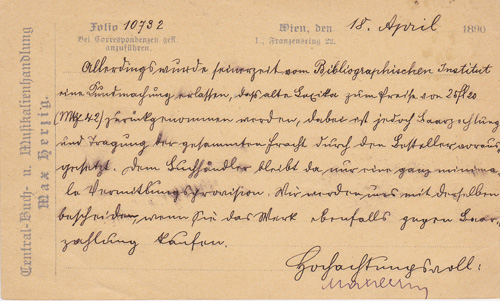 Central-Buch- u. Musikalienhandlung
Max Herzig.
Folio 10732
Bei Correspondenzen gefl.
anzuführen.
Wien, den 18. April 1890
I., Franzensring 22.
Allerdings wurde seinerzeit vom Bibliographischen Institut
eine Kundmachung erlassen, daß alte Lexika zum Preise von 25 fl 20
(Mk 42) zurückgenommen werden, dabei ist jedoch Baarzahlung
und Tragung der gesammten Fracht durch den Besteller voraus
gesetzt. Dem Buchhändler bleibt da nur eine ganz minima-
le Vermittlungsprovision. Wir werden uns mit derselben
bescheiden, wenn Sie das Werk ebenfalls gegen Baar-
zahlung kaufen.
Hochachtungsvoll: